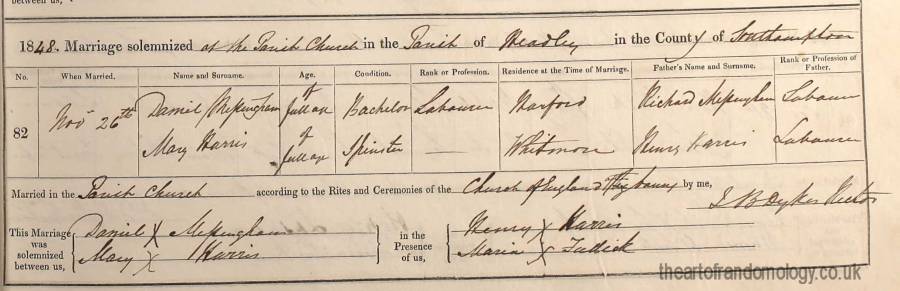 between us,
1848. Marriage solemnized at the Parish Church in the Parish of Headley in the County of Southampton
No. When Married. Name and Surname. Age. Condition. Rank or Profession. Residence at the Time of Marriage. Father's Name and Surname. Rank or Profession of Father.
82 Novr 26th Daniel Messingham of full age Bachelor Labourer Harford Richard Messingham Labourer
Mary Harris of full age Spinster — Whitmore Henry Harris Labourer
Married in the Parish Church according to the Rites and Ceremonies of the Church of England by me,
J B Dykes Rector
This Marriage was solemnized between us, Daniel X Messingham in the Presence of us, Henry X Harris
Mary X Harris Maria X
theartofrandomology.co.uk